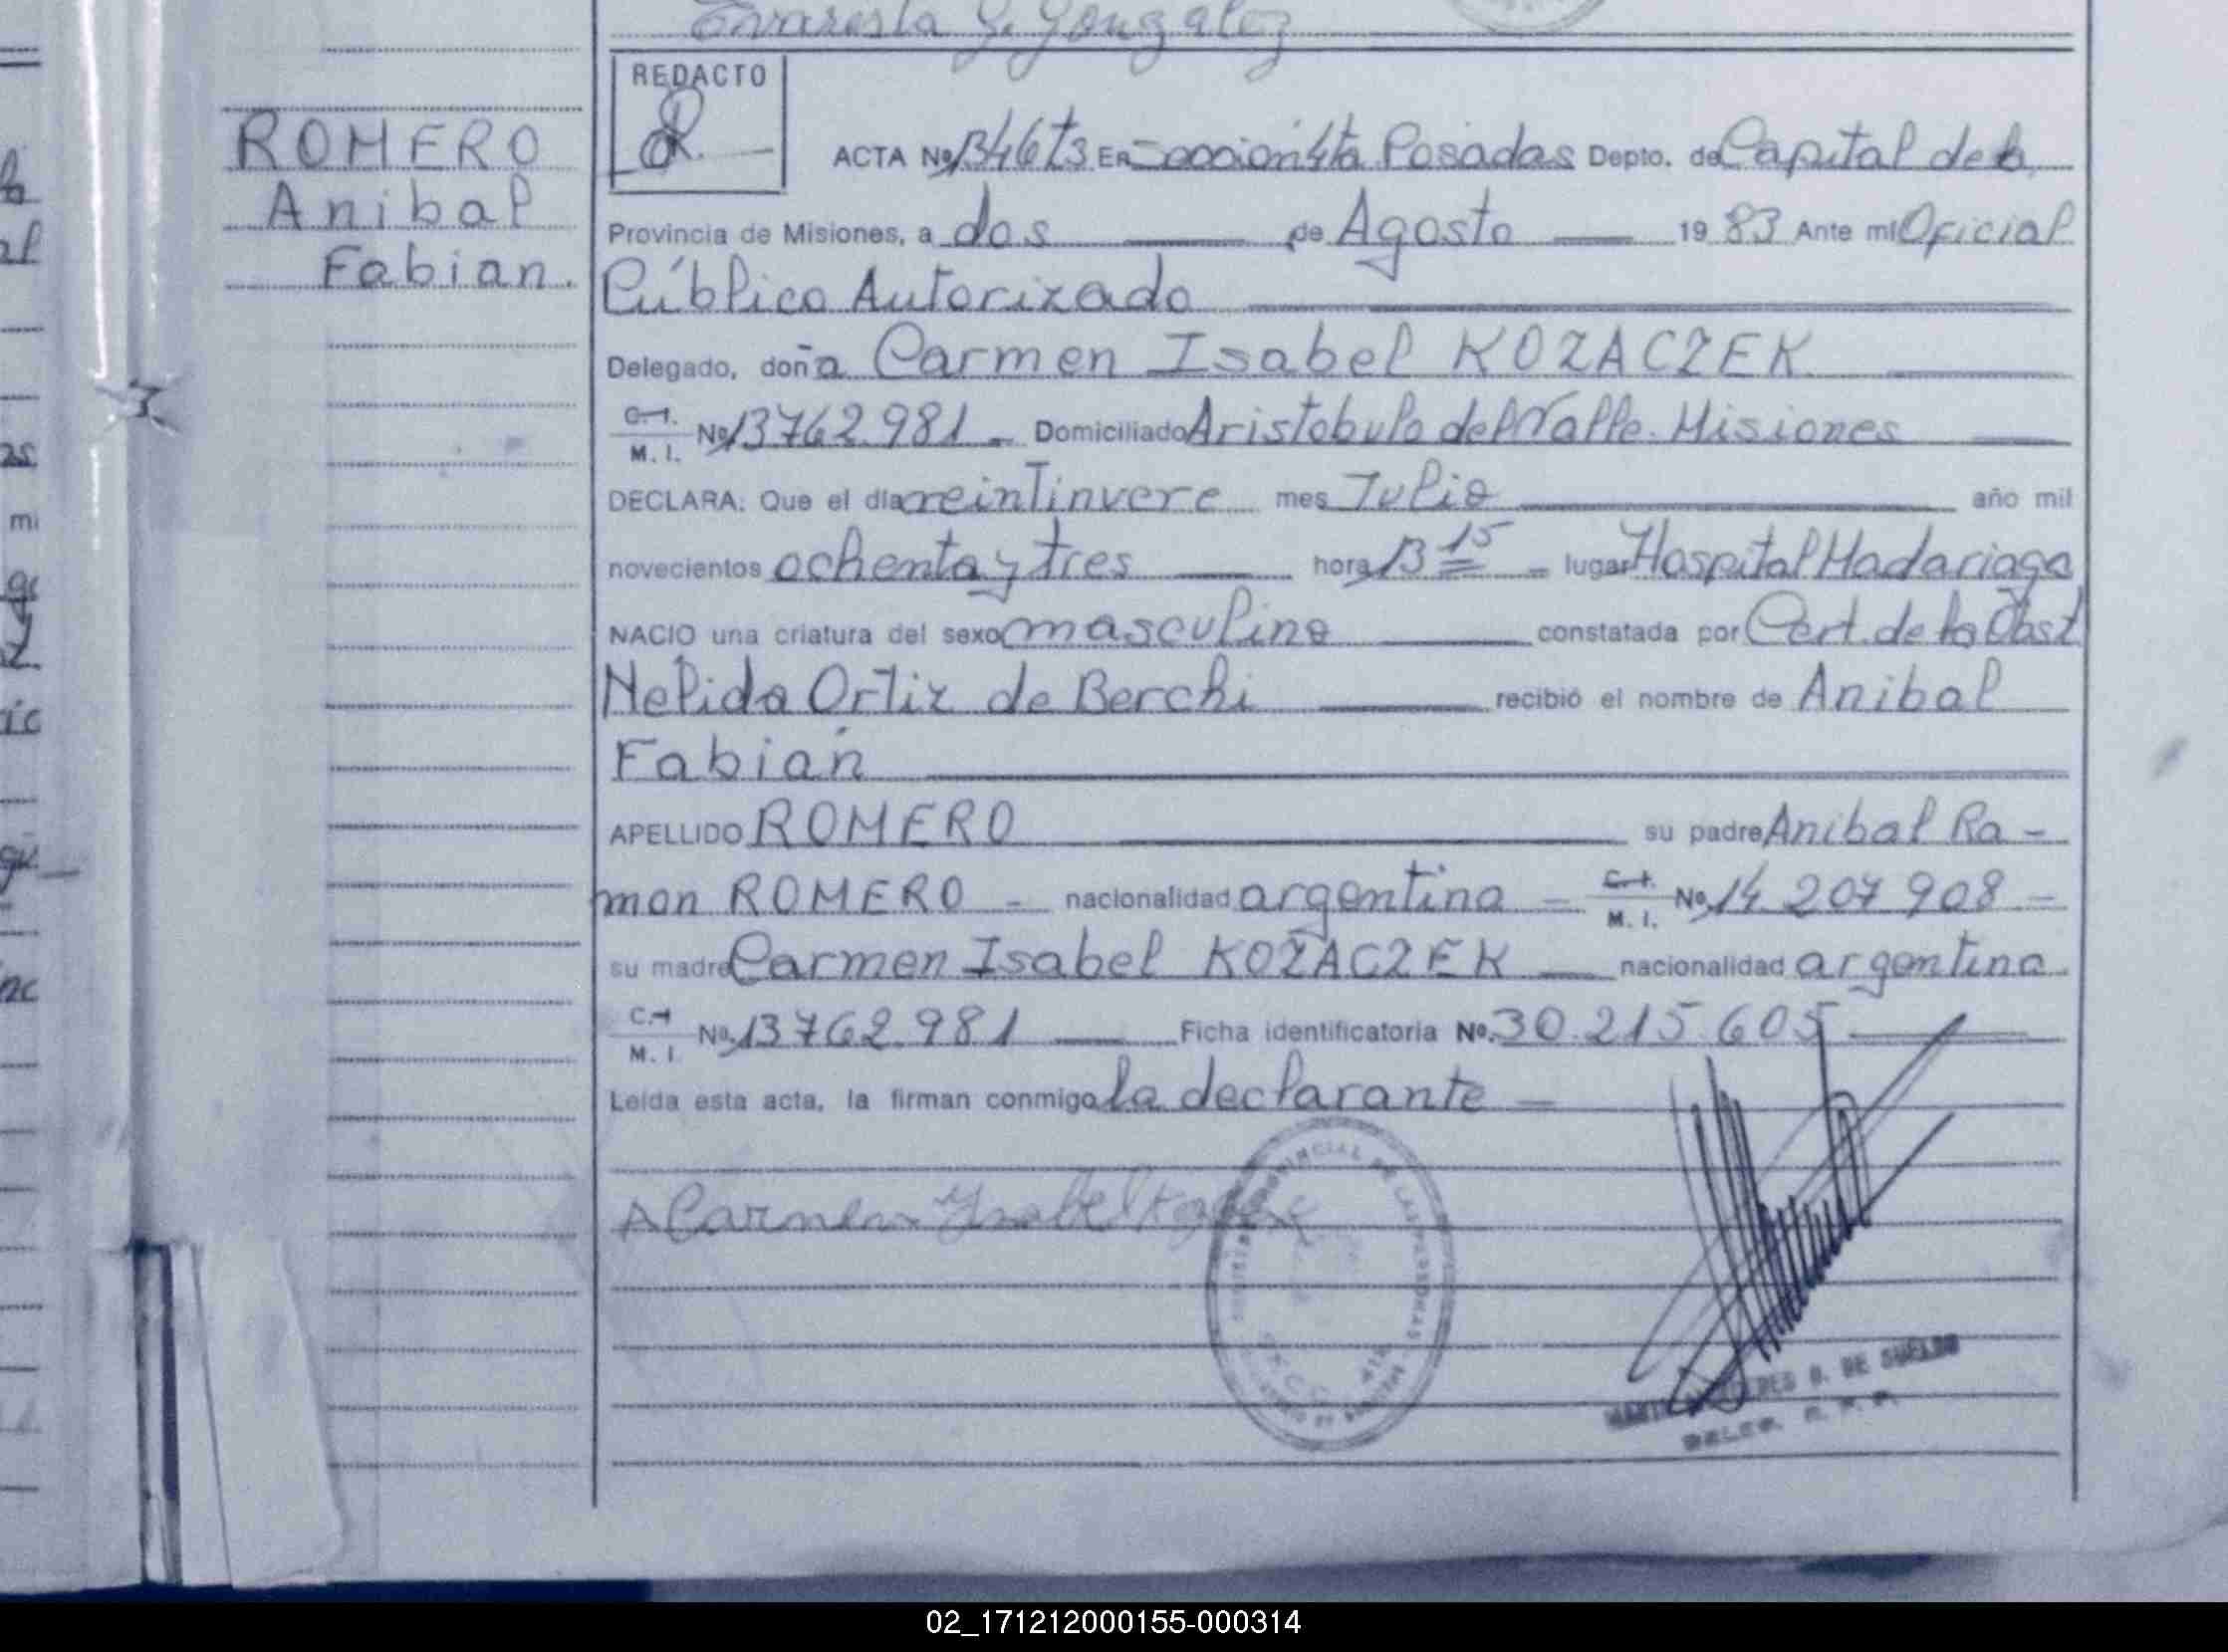 Evarista G. Gonzalez
REDACTO
ROMERO
Anibal
Fabian.
ACTA Nº 1346 t3 En Sección 4ta Posadas Depto. de Capital de la
Provincia de Misiones, a dos de Agosto 1983 Ante mi Oficial
Público Autorizado
Delegado, doña Carmen Isabel KOZACZEK
C.I. M. I. Nº 13762.981 - Domiciliado Aristobulo del Valle. Misiones
DECLARA: Que el día veintinueve mes Julio año mil
novecientos ochenta y tres hora 13 15 - lugar Hospital Madariaga
NACIO una criatura del sexo masculino constatada por Cert. de la Obst
Nelida Ortiz de Berchi recibió el nombre de Anibal
Fabian
APELLIDO ROMERO su padre Anibal Ra-
mon ROMERO - nacionalidad argentina - C.I. M. I. Nº 14.207.908 -
su madre Carmen Isabel KOZACZEK nacionalidad argentina
C.I. M. I. Nº 13762.981 Ficha identificatoria Nº 30.215.605
Leída esta acta, la firman conmigo la declarante -
Carmen Ysabel
PROVINCIAL DE LAS PERSONAS
DE SUELDO
02_171212000155-000314